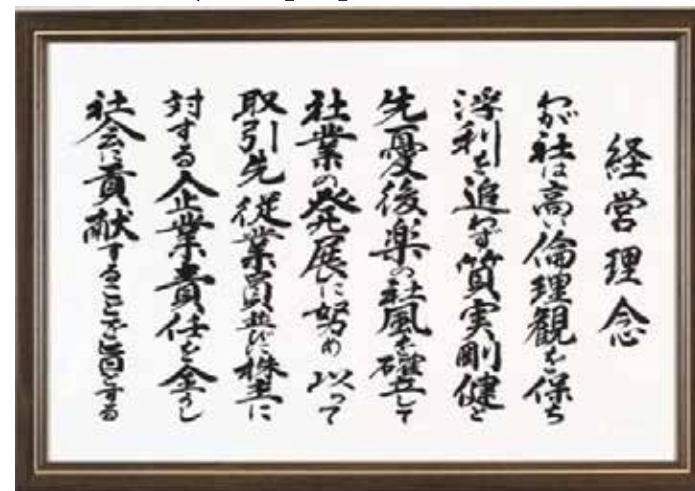 経営理念
わが社は高い倫理観を保ち
浮利を追わず質実剛健と
先憂後楽の社風を確立して
社業の発展に努め以って
取引先従業員並びに株主に
対する企業責任を全うし
社会に貢献することを旨とする